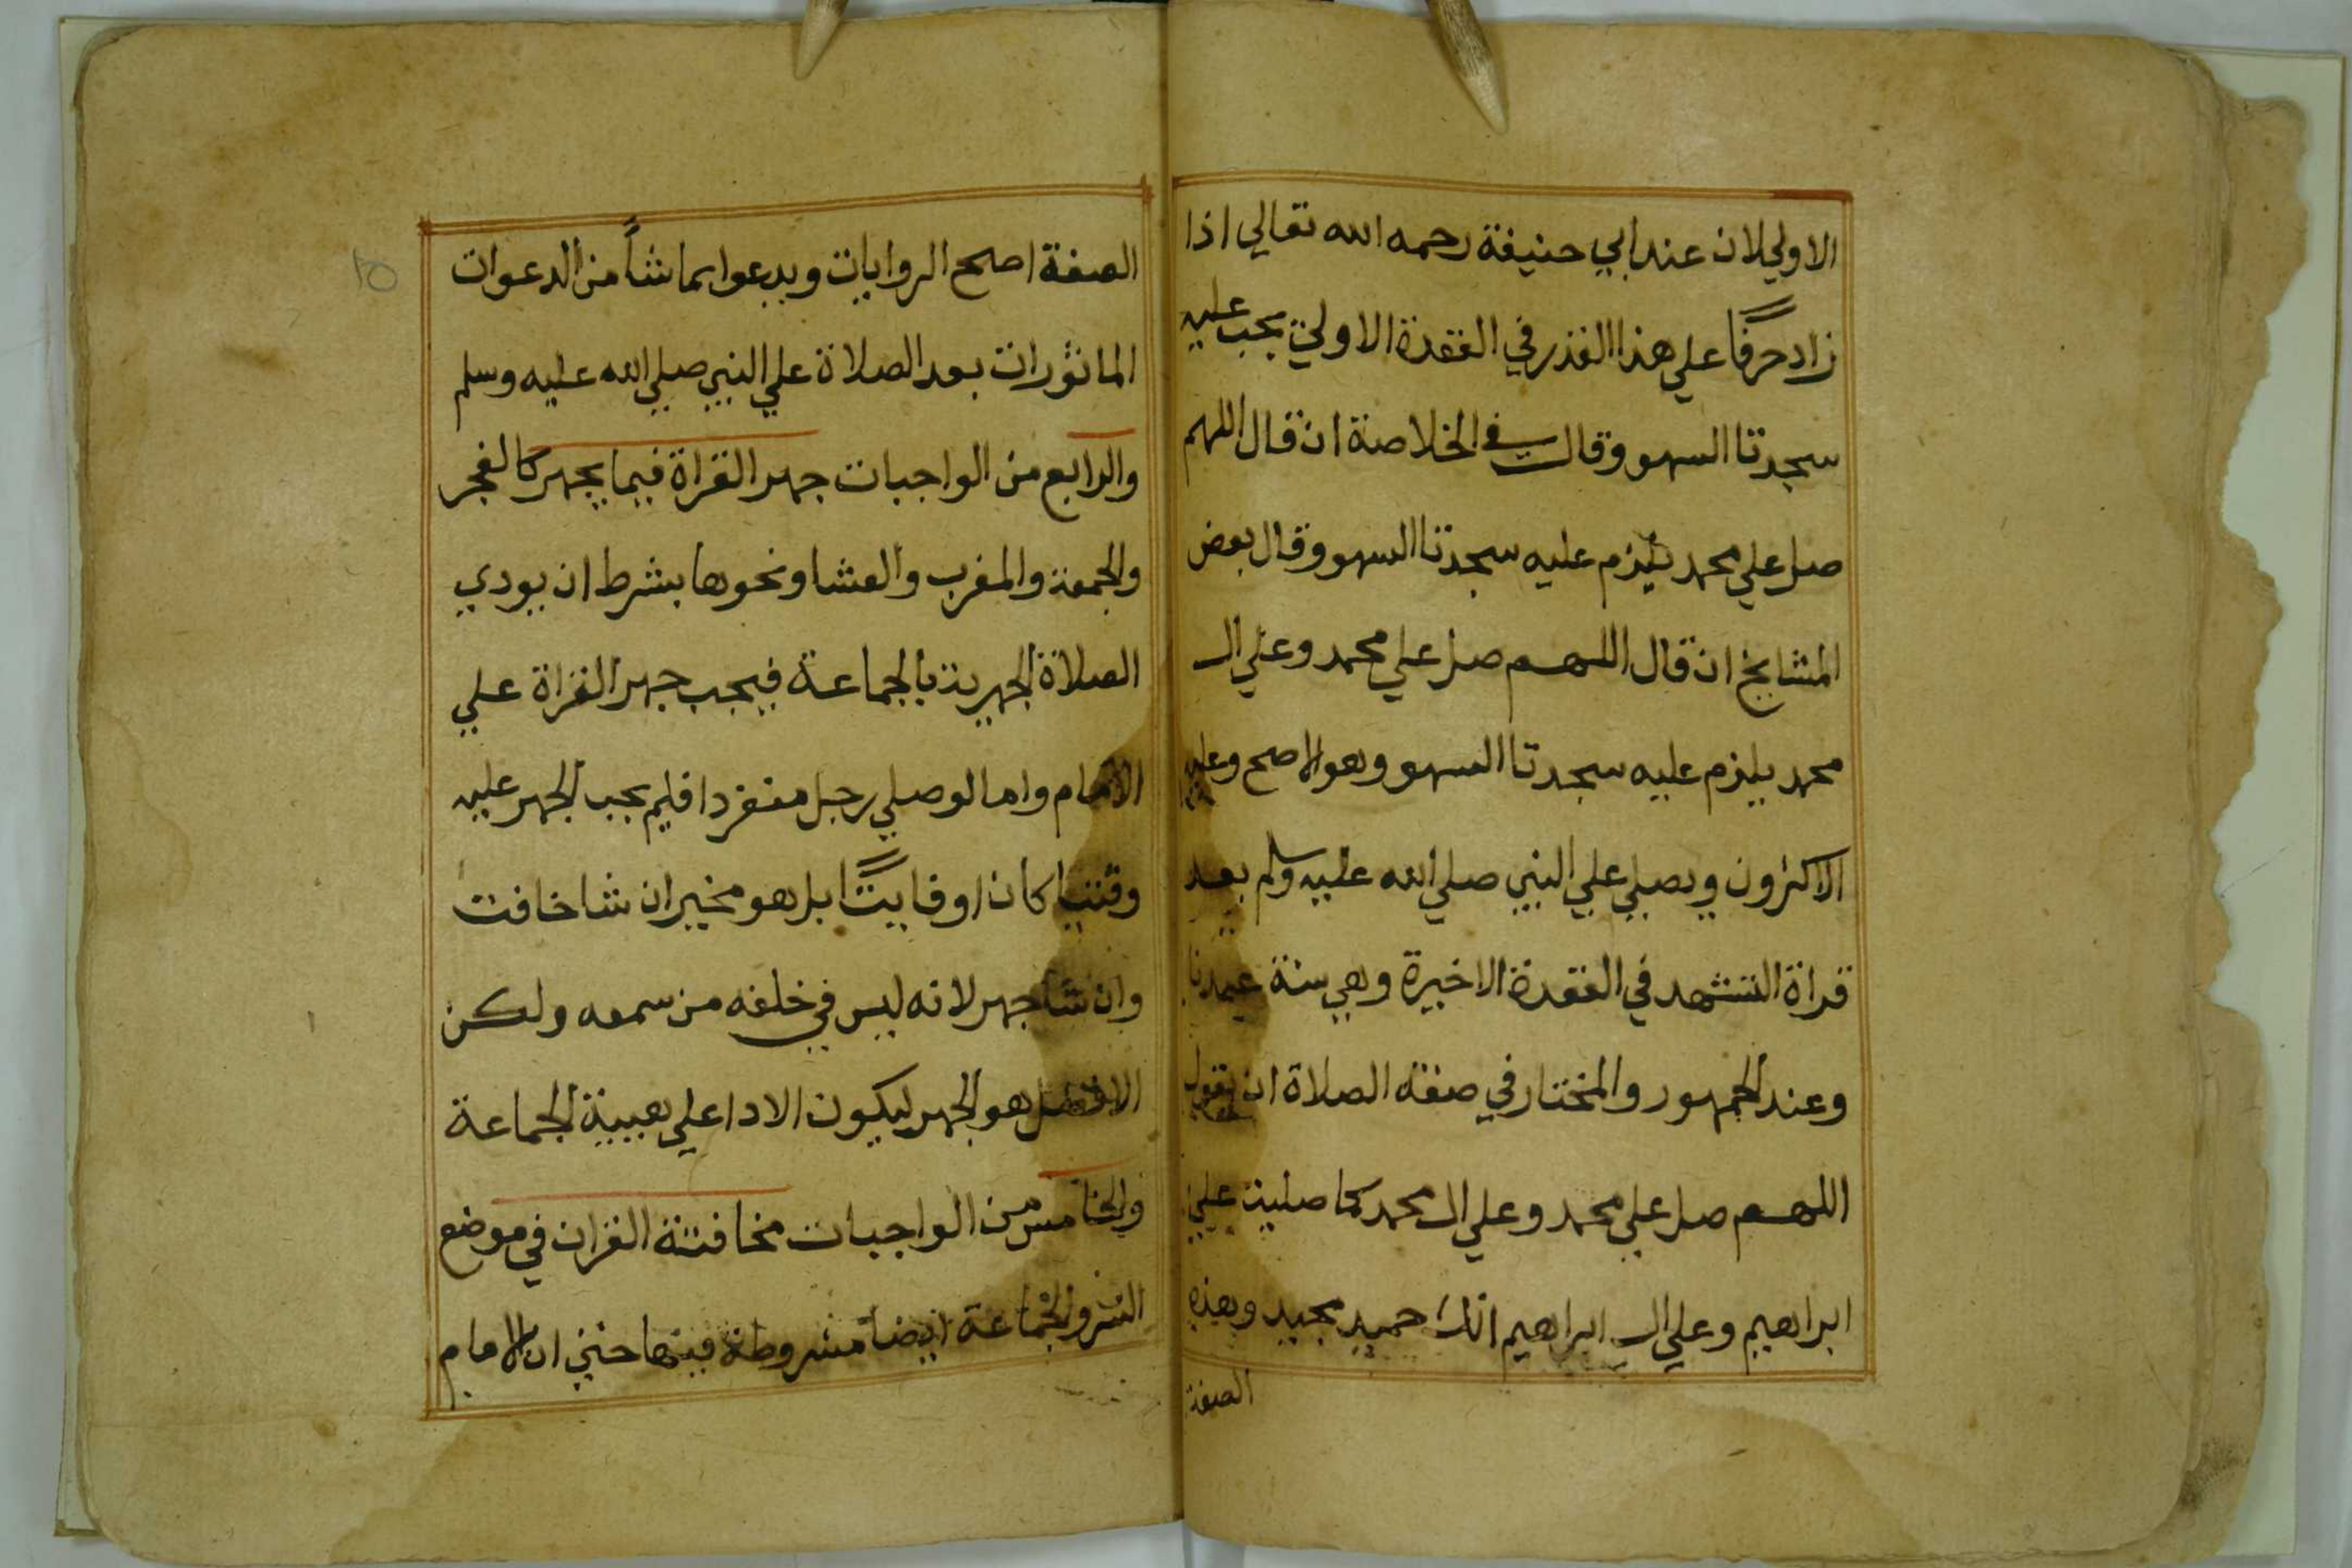 الاولي لان عند ابي حنيفة رحمه الله تعالي اذا
زاد حرفًا علي هذا القدر في القعدة الاولي يجب عليه
سجدتا السهو وقال في الخلاصة ان قال اللهم
صل علي محمد يلزم عليه سجدتا السهو وقال بعض
المشايخ ان قال اللهم صل علي محمد وعلي ال
محمد يلزم عليه سجدتا السهو وهو الاصح وعليه
الاكثرون ويصلي علي النبي صلي الله عليه وسلم بعد
قراة التشهد في القعدة الاخيرة وهي سنة عندنا
وعند الجمهور والمختار في صفة الصلاة ان يقول
اللهم صل علي محمد وعلي ال محمد كما صليت علي
ابراهيم وعلي ال ابراهيم انك حميد مجيد وهذه
الصفة
٢٥
الصفة اصح الروايات ويدعوا بما شأ من الدعوات
الماثورات بعد الصلاة علي النبي صلي الله عليه وسلم
والرابع من الواجبات جهر القراة فيما يجهر كالفجر
والجمعة والمغرب والعشا ونحوها بشرط ان يودي
الصلاة الجهرية بالجماعة فيجب جهر القراة علي
الامام واما لو صلي رجل منفردا فلم يجب الجهر عليه
وقتيا كان او فايتًا بل هو مخير ان شا خافت
وان شا جهر لانه ليس في خلفه من سمعه ولكن
الافضل هو الجهر ليكون الادا علي هيية الجماعة
والخامس من الواجبات مخافتة القران في موضع
السر والجماعة ايضا مشروطة فيها حتي ان الامام